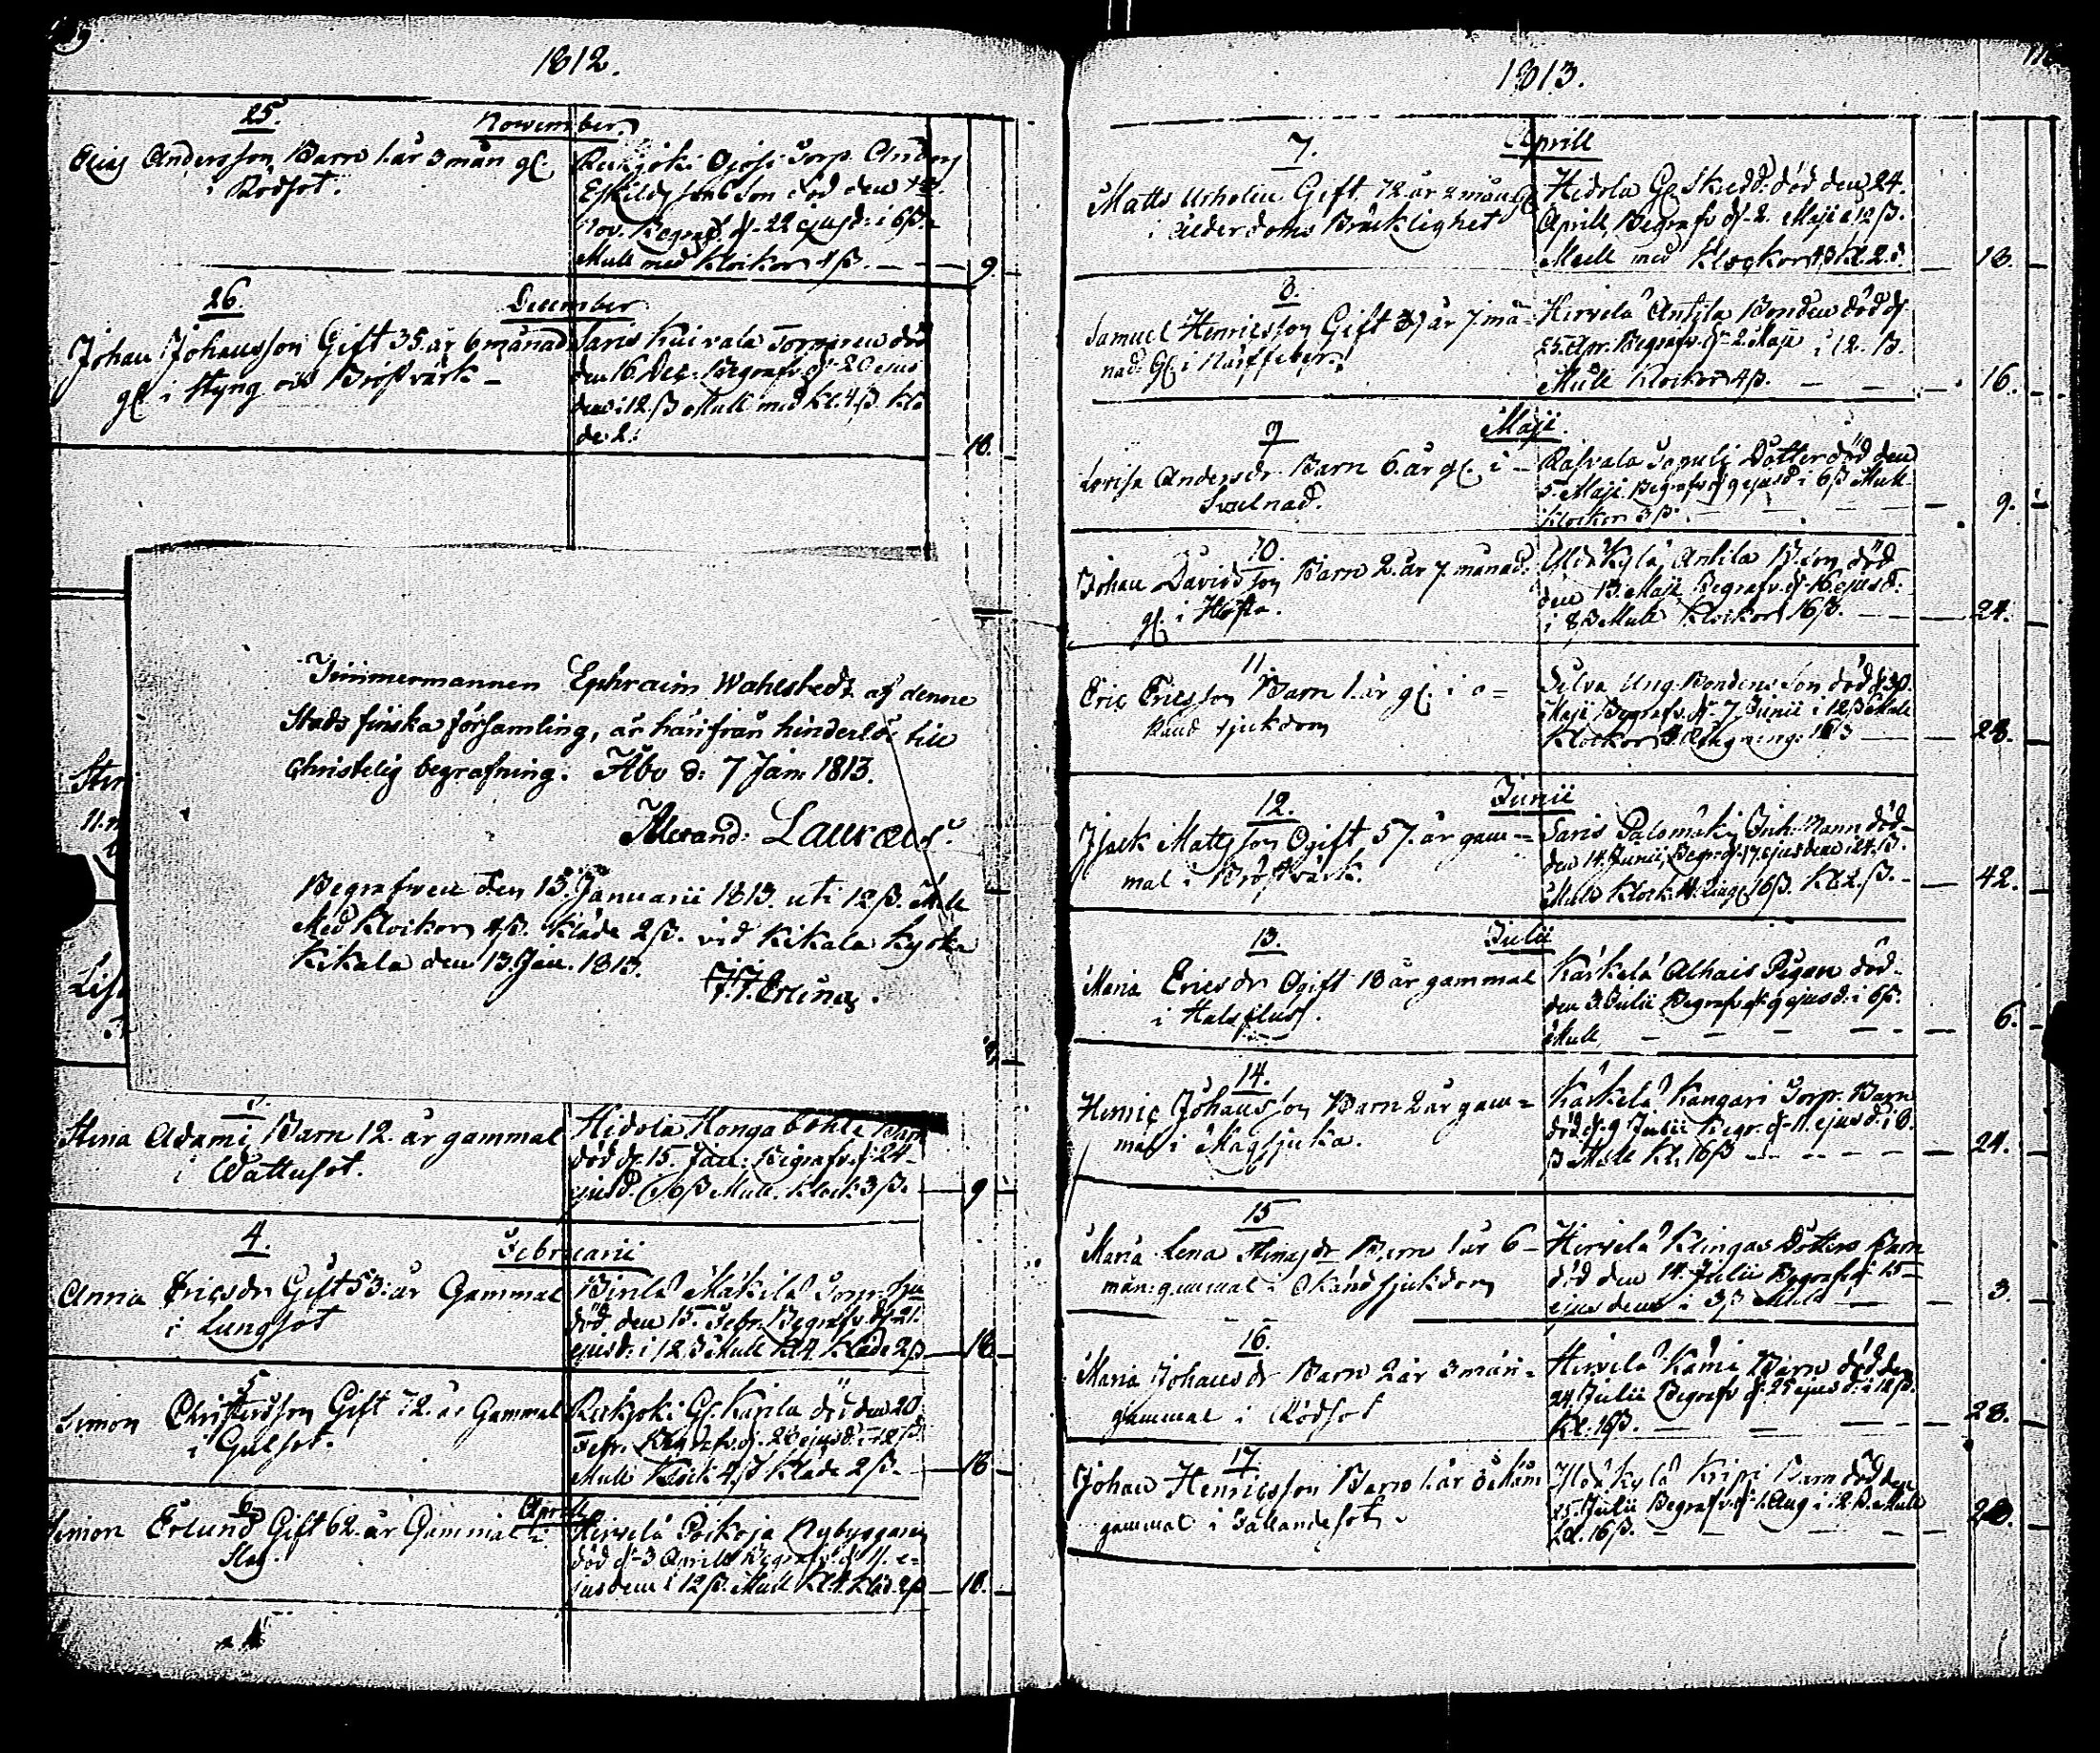 1812.
25.
November.
Elias Andersson Barn 1. år 3 mån gl.
i Rödsot.
Rekijoki Ojosi Torp. Anders
Eskilds son Son död den
Nov. Begraf. d. 22 ejusd: i 6 ß.
Mull med Klockorn 4 ß. — — 9.
26.
December
Johan Johansson Gift 35. år 6 månad
gl. i Styng och Bröstvärk —
Saris Kuivala Torparen död
den 16 Dec. Begrafv. d. 20 ejus
dem i 12. ß Mull med Kl. 4 ß. Klä
de 2. — 18.
Timmermannen Ephraim Wahlstedt af denne
Stads finska församling, är härifrån hinderlös till
christelig begrafning. Åbo d: 7 Jan: 1813.
Alexand: Lauræus.
Begrafven den 13. Januarii 1813. uti 12 ß. Mull
Med Klockorn 4 ß. Kläde 2 ß. vid Kikala kyrka
Kikala den 13. Jan. 1813.
Stin
11. m
Lis
Stina Adami Barn 12. år gammal
i Wattusot.
Hidola Kongaböhle Barn
död d. 15. Jan: Begrafv. d. 24
ejusd. i 6 ß Mull. Klock 3 ß. — 9
4.
Februarii
Anna Ericsdr Gift 53: år Gammal
i Lungsot
Mäkilä Torp.
död den 15. Febr. Begrafv. d. 21.
ejusd: i 12. ß Mull Kl 4. Kläde 2 ß — 18
5
Simon Christersson Gift 72. år Gammal
i Gulsot.
Rekijoki Gl. Karila död den 20.
Febr. Begrafv. d. 28 ejusd: i 12 ß.
Mull Klock 4 ß Kläde 2 ß. — 18
6.
Aprill
Simon Erlund Gift 62. år Gammal i
Slag.
Hirvelä Poikoja Nybyggaren
död d. 3 Aprill Begrafv. d. 11. e=
jusdem i 12 ß. Mull Kl. 4. Kläd. 2 ß — 18.
1813.
7.
Aprill
Matts Urholin Gift 72 år 2 mån gl
i ålderdoms Bräcklighet
Hidola Gl. död den 24.
Aprill, Begrafv d. 2. Maji i 12 ß.
Mull med Klockorn 4 ß Kl. 2 ß. — 18.
8.
Samuel Henricsson Gift 37 år 7. må=
nad. Gl. i Närffeber.
Hirvelä Anttla Bonden död d.
25. Apr. Begrafv. d. 2. Maji i 12. ß.
Mull Klockor 4 ß. — — 16.
9
Maji.
Lovisa Andersdr Barn 6. år gl. i —
Svulnad.
Rasvala Dotter död den
5. Maji. Begrafv. d. 9 ejusd i 6 ß Mull
Klockor 3 ß. — — — 9.
10.
Johan Davidsson Barn 2. år 7. månad.
gl. i Hosta.
Anttila B. son död
den 13. Maji Begrafv. d. 16. ejusd:
i 8 ß Mull Klockor 16 ß. — — 24.
11.
Eric Ericsson Barn 1. år gl. i o=
känd sjukdom
Silva Ung Bondens son död d. 30.
Maji Begrafv. d. 7 Junii i 12 ß Mull
Klockor & Ringning: 16 ß — — 28.
12.
Junii
Isack Mattsson Ogift 57. år gam=
mal i Bröstvärk.
Saris Palomäki Inh: Mann död
den 14. Junii, Begr. d. 17. ejusdem i 24. ß.
Mull Klock 16 ß. Kl 2. ß. — 42.
13.
Julii
Maria Ericsdr Ogift 18 år gammal
i Halsfluss.
Kärkelä Alhais Pigan död
den 3. Julii Begrafv. d. 9 ejusd: i 6 ß.
Mull — — — 6.
14.
Henric Johansson Barn 2 år gam=
mal i Magsjuka.
Kärkelä Kangari Torp. Barn
död d. 9 Julii Begr. d. 11. ejusd: i 8.
ß Mull Kl. 16 ß — — — 24.
15
Maria Lena Stinasdr Barn 1 år 6
mån: gammal i Okänd sjukdom
Hirvelä Klingas Dotters Barn
död den 14. Julii Begrafv. d. 15
ejusdem i 3 ß Mull — — 3
16.
Maria Johansdr Barn 2 år 3 mån=
gammal i Rödsot
Hirvelä Kämi Barn död den
24. Julii Begrafv d. 25 ejusd: i 12 ß.
Kl. 16 ß. — — — 28.
17.
Johan Henricsson Barn 1. år 3 Mån
gammal i Fallandesot.
Kripi Barn död den
25. Julii Begrafv. d. 1. Aug i 12. ß. Mull
Kl. 16 ß. — — — 28.